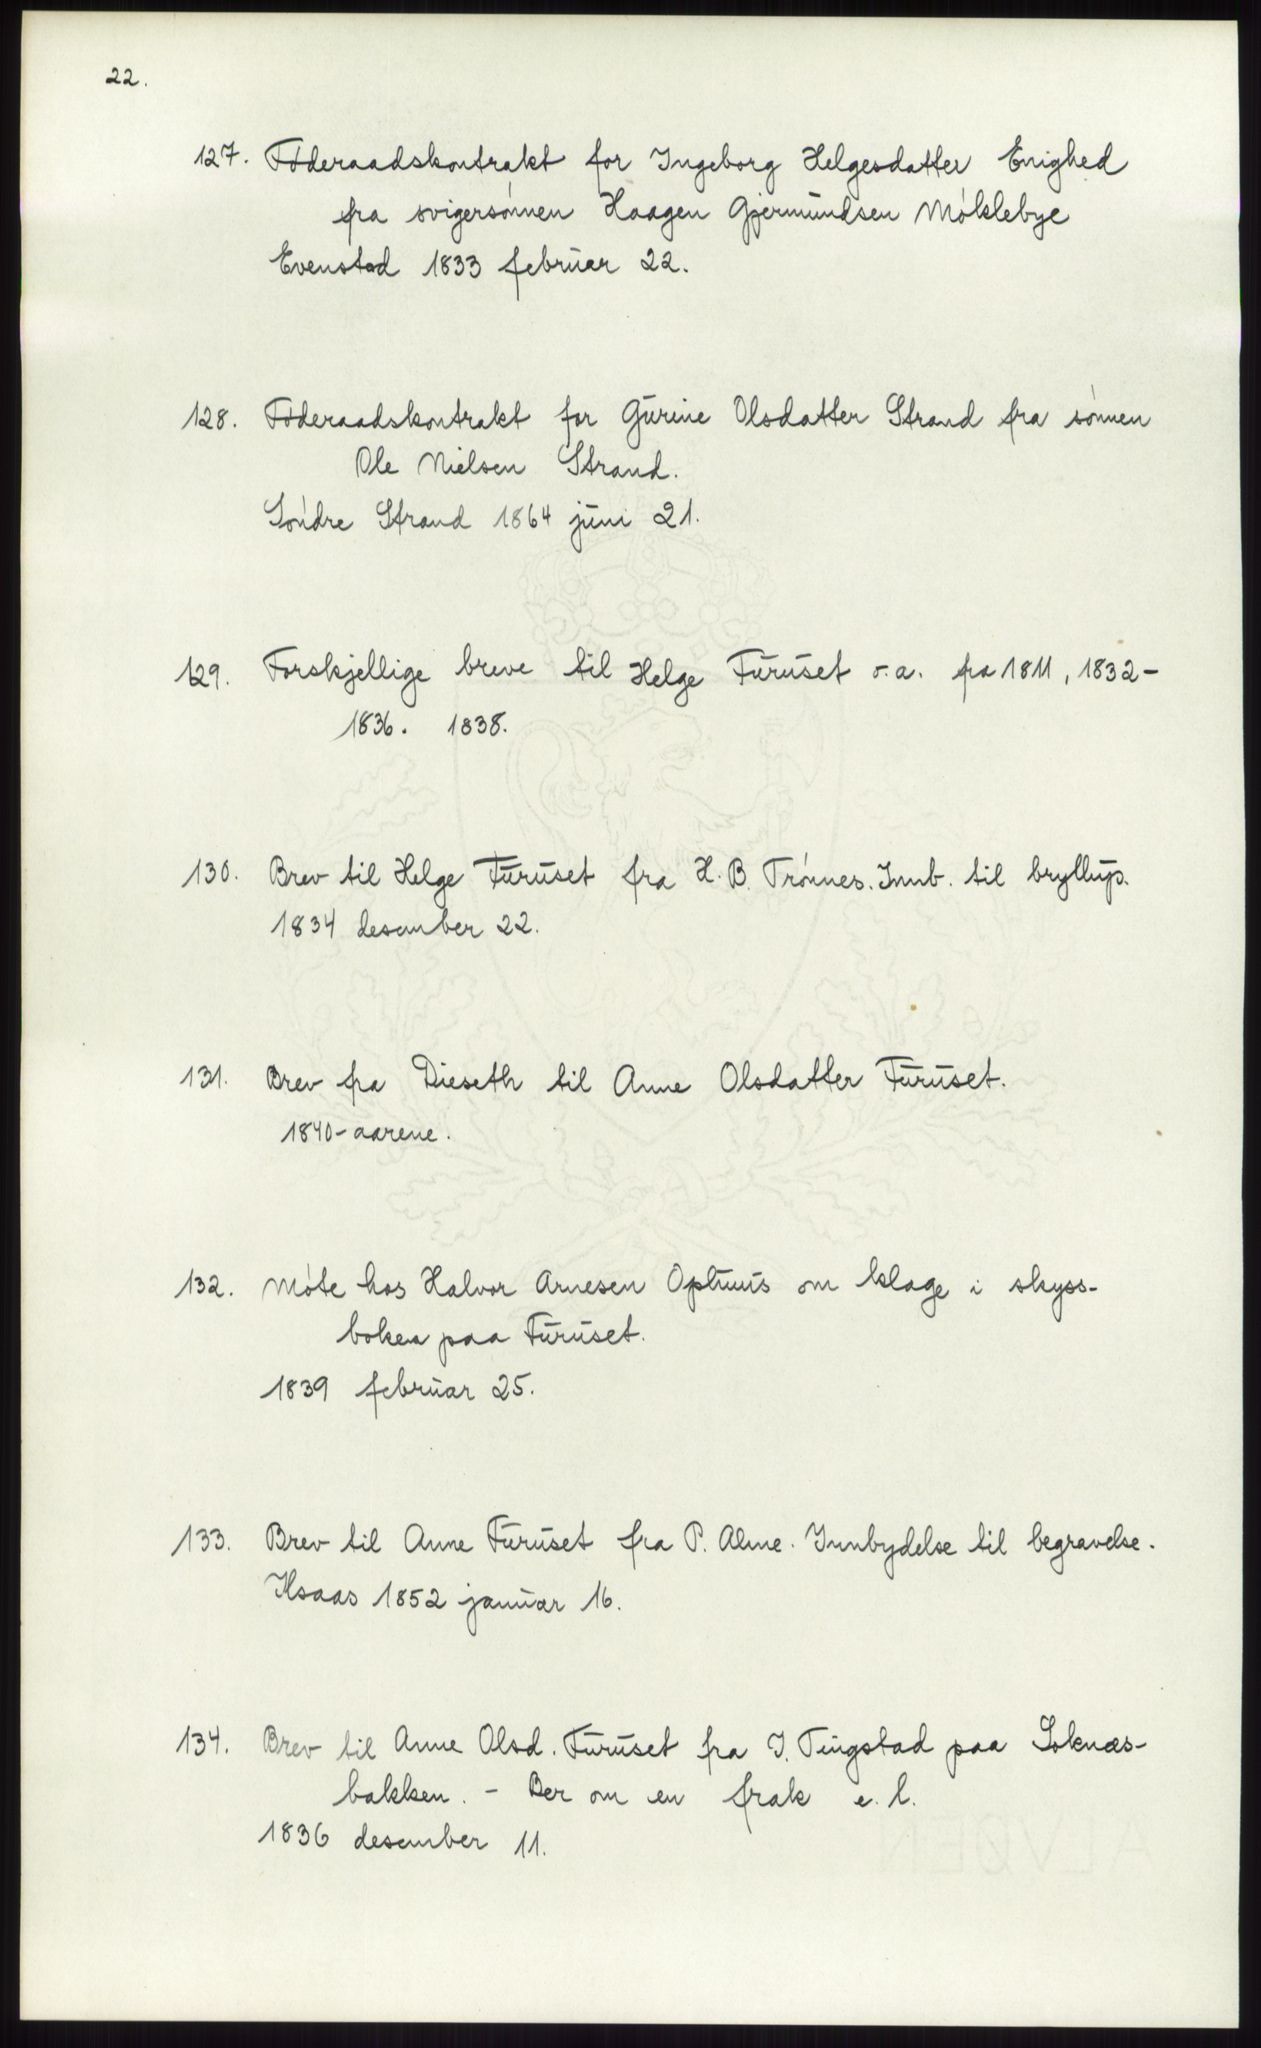 22.
127. Føderaadskontrakt for Ingeborg Helgesdatter Enighed
fra svigersønnen Haagen Gjermundsen Møklebye
Evenstad 1833 februar 22.
128. Føderaadskontrakt for Gurine Olsdatter Strand fra sønnen
Ole Nielsen Strand.
Søndre Strand 1864 juni 21.
129. Forskjellige breve til Helge Furuset o.a. fra 1811, 1832-
1836. 1838.
130. Brev til Helge Furuset fra H. B. Trønnes. Innb. til bryllup.
1834 desember 22.
131. Brev fra Dieseth til Anne Olsdatter Furuset.
1840-aarene.
132. Møte hos Halvor Arnesen Ophuus om klage i skyss-
boken paa Furuset.
1839 februar 25.
133. Brev til Anne Furuset fra P. Alme. Innbydelse til begravelse.
Ilsaas 1852 januar 16.
134. Brev til Anne Olsd. Furuset fra I. Tingstad paa Soknæs-
bakken. - Ber om en frak e. l.
1836 desember 11.
ALVØEN